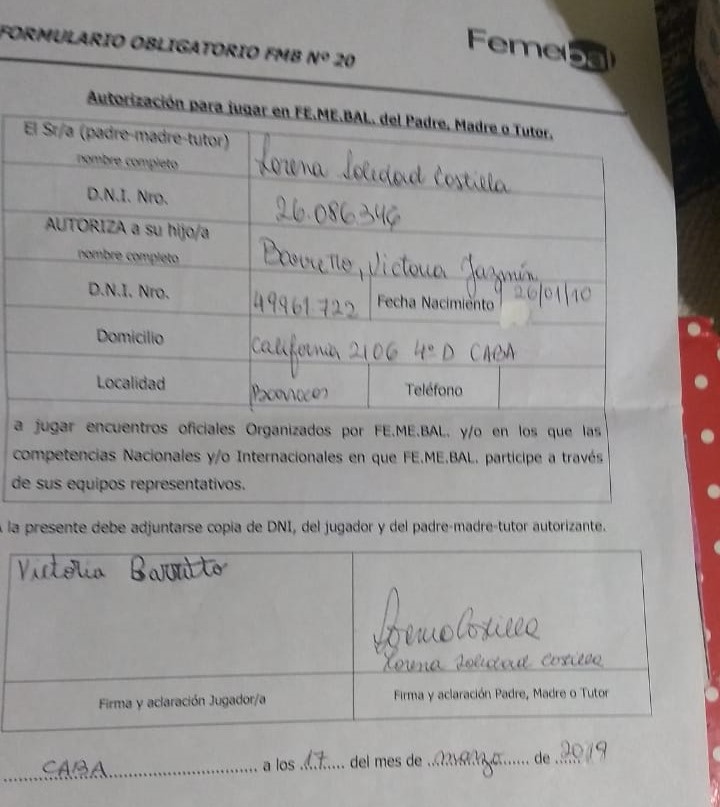 FORMULARIO OBLIGATORIO FMB Nº 20
Femebal
Autorización para jugar en FE.ME.BAL. del Padre, Madre o Tutor.
El Sr/a (padre-madre-tutor)
nombre completo
Lorena Soledad Costilla
D.N.I. Nro.
26.086346
AUTORIZA a su hijo/a
nombre completo
Barretto, Victoria Jazmín
D.N.I. Nro.
49961722
Fecha Nacimiento
26/01/10
Domicilio
California 2106 4º D CABA
Localidad
Barracas
Teléfono
a jugar encuentros oficiales Organizados por FE.ME.BAL. y/o en los que las
competencias Nacionales y/o Internacionales en que FE.ME.BAL. participe a través
de sus equipos representativos.
la presente debe adjuntarse copia de DNI, del jugador y del padre-madre-tutor autorizante.
Victoria Barretto
Lorena Costilla
Lorena Soledad Costilla
Firma y aclaración Jugador/a
Firma y aclaración Padre, Madre o Tutor
CABA a los 17 del mes de marzo de 2019